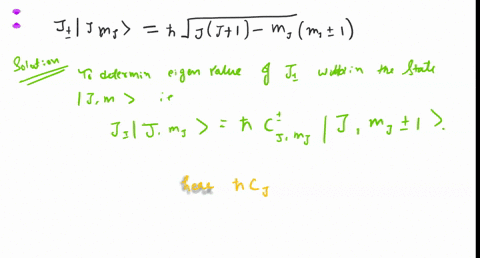 J± | J mJ > = ħ √J(J+1) − mJ (mJ ± 1)
Solution
To determin eigen value of J± within the State
|J, m > ie
J± | J, mJ > = ħ C±J,mJ | J, mJ ±1 >.
ħ CJ